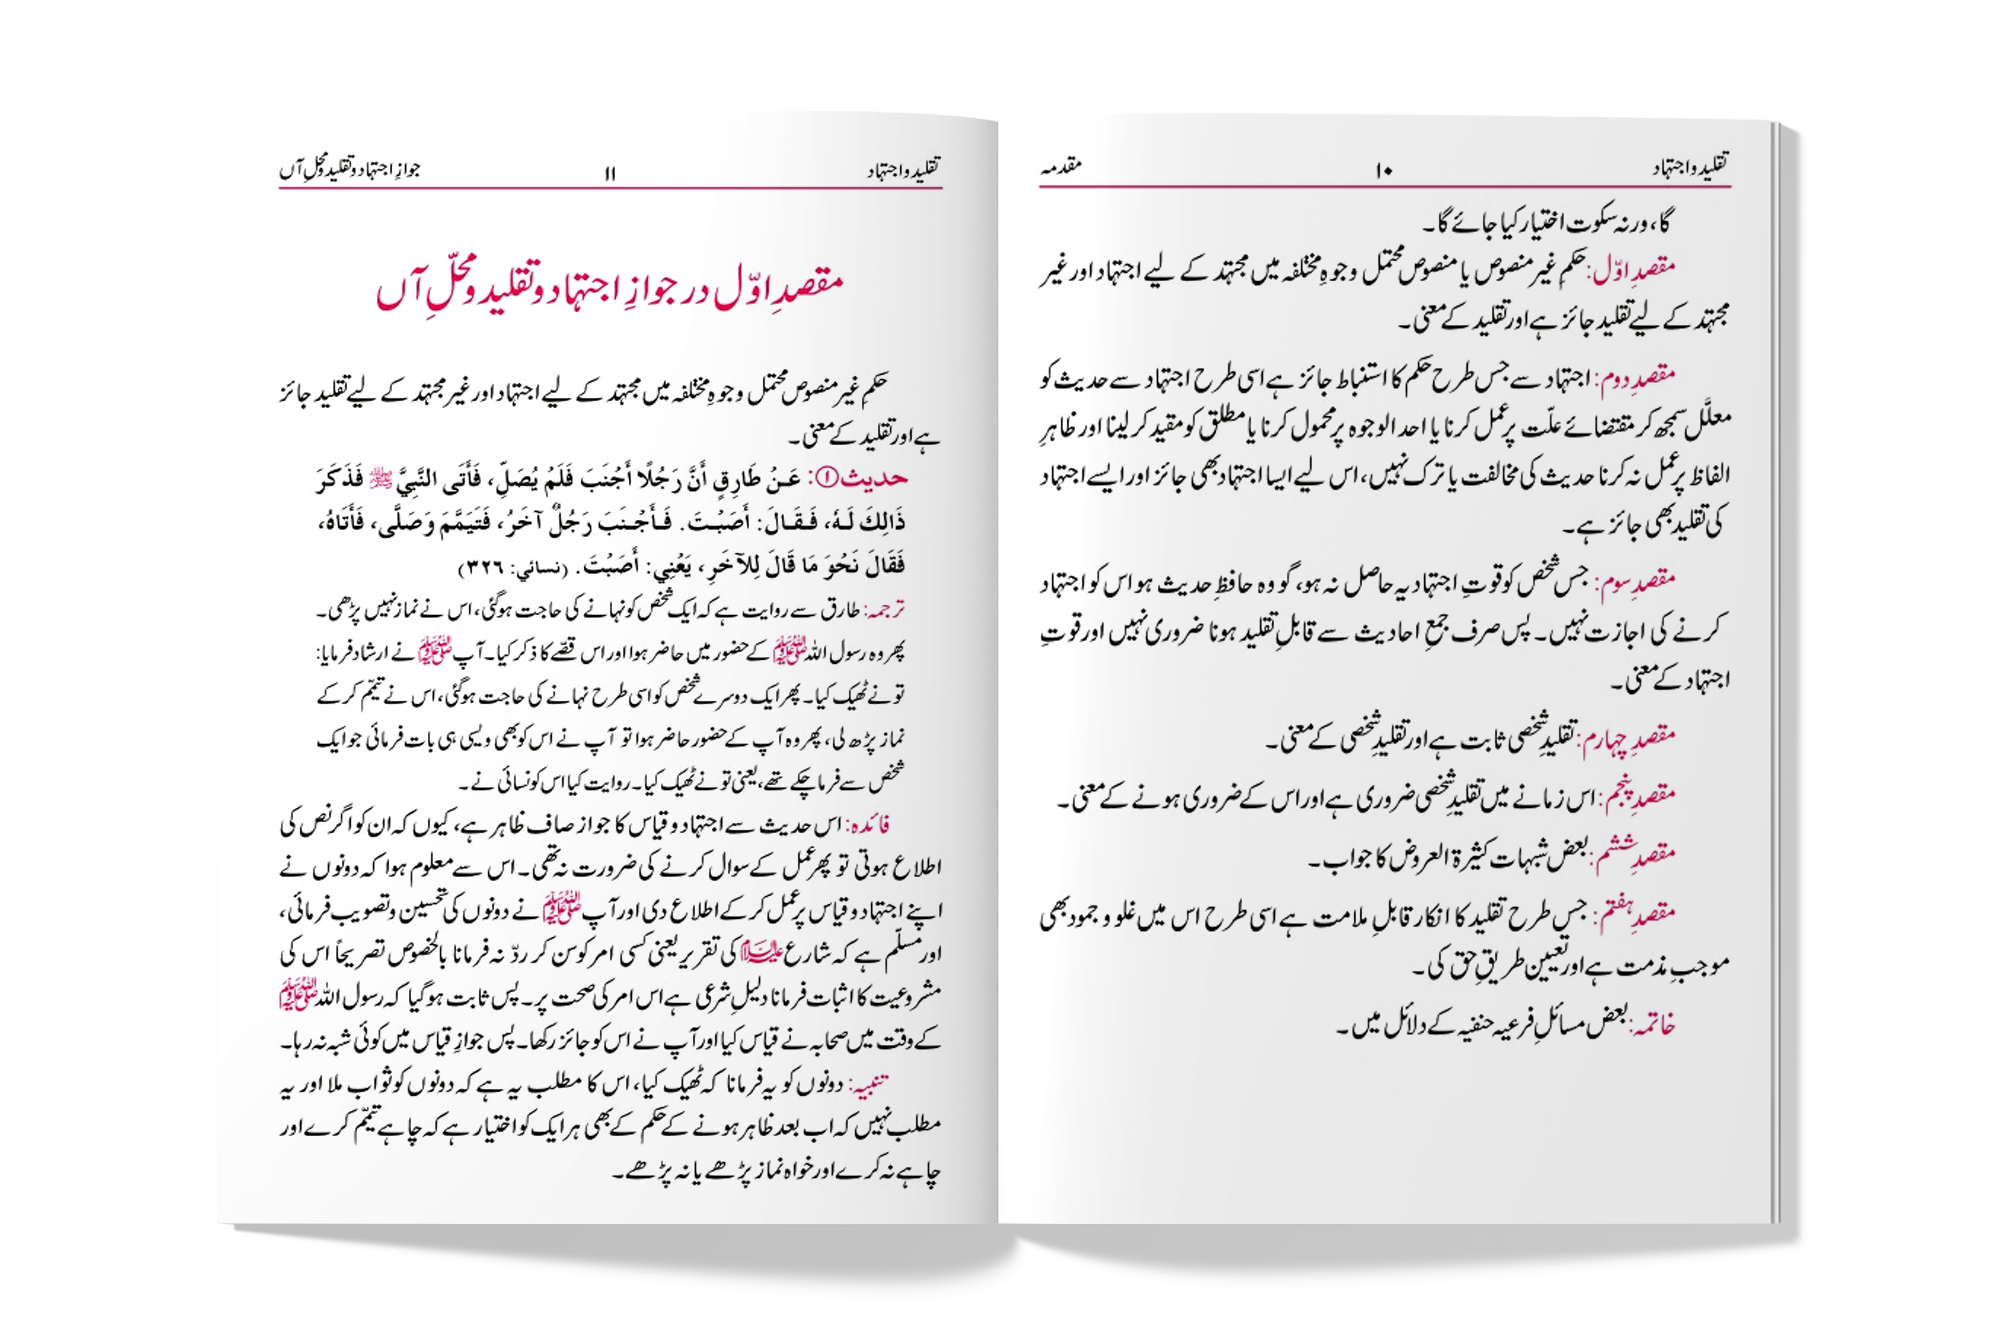 تقلید و اجتہاد ۱۰ مقدمہ
گا، ورنہ سکوت اختیار کیا جائے گا۔
مقصدِ اوّل: حکمِ غیر منصوص یا منصوص محتمل وجوہِ مختلفہ میں مجتہد کے لیے اجتہاد اور غیر
مجتہد کے لیے تقلید جائز ہے اور تقلید کے معنی۔
مقصدِ دوم: اجتہاد سے جس طرح حکم کا استنباط جائز ہے اسی طرح اجتہاد سے حدیث کو
معلَّل سمجھ کر مقتضائے علّت پر عمل کرنا یا احد الوجوہ پر محمول کرنا یا مطلق کو مقید کر لینا اور ظاہرِ
الفاظ پر عمل نہ کرنا حدیث کی مخالفت یا ترک نہیں، اس لیے ایسا اجتہاد بھی جائز اور ایسے اجتہاد
کی تقلید بھی جائز ہے۔
مقصدِ سوم: جس شخص کو قوتِ اجتہادیہ حاصل نہ ہو، گو وہ حافظِ حدیث ہو اس کو اجتہاد
کرنے کی اجازت نہیں۔ پس صرف جمعِ احادیث سے قابلِ تقلید ہونا ضروری نہیں اور قوتِ
اجتہاد کے معنی۔
مقصدِ چہارم: تقلیدِ شخصی ثابت ہے اور تقلیدِ شخصی کے معنی۔
مقصدِ پنجم: اس زمانے میں تقلیدِ شخصی ضروری ہے اور اس کے ضروری ہونے کے معنی۔
مقصدِ ششم: بعض شبہات کثیرۃ العروض کا جواب۔
مقصدِ ہفتم: جس طرح تقلید کا انکار قابلِ ملامت ہے اسی طرح اس میں غلو و جمود بھی
موجبِ مذمت ہے اور تعیین طریقِ حق کی۔
خاتمہ: بعض مسائلِ فرعیہ حنفیہ کے دلائل میں۔
تقلید و اجتہاد ۱۱ جوازِ اجتہاد و تقلید و محلِ آں
مقصدِ اوّل در جوازِ اجتہاد و تقلید و محلّ آں
حکمِ غیر منصوص محتمل وجوہِ مختلفہ میں مجتہد کے لیے اجتہاد اور غیر مجتہد کے لیے تقلید جائز
ہے اور تقلید کے معنی۔
حدیث①: عَنْ طَارِقٍ أَنَّ رَجُلًا أَجْنَبَ فَلَمْ يُصَلِّ، فَأَتَى النَّبِيَّ ﷺ فَذَكَرَ
ذَالِكَ لَهُ، فَقَالَ: أَصَبْتَ. فَأَجْنَبَ رَجُلٌ آخَرُ، فَتَيَمَّمَ وَصَلَّى، فَأَتَاهُ،
فَقَالَ نَحْوَ مَا قَالَ لِلآخَرِ، يَعْنِي: أَصَبْتَ. (نسائي: ۳۲۶)
ترجمہ: طارق سے روایت ہے کہ ایک شخص کو نہانے کی حاجت ہوگئی، اس نے نماز نہیں پڑھی۔
پھر وہ رسول اللہ ﷺ کے حضور میں حاضر ہوا اور اس قصّے کا ذکر کیا۔ آپ ﷺ نے ارشاد فرمایا:
تو نے ٹھیک کیا۔ پھر ایک دوسرے شخص کو اسی طرح نہانے کی حاجت ہوگئی، اس نے تیمّم کر کے
نماز پڑھ لی، پھر وہ آپ کے حضور حاضر ہوا تو آپ نے اس کو بھی ویسی ہی بات فرمائی جو ایک
شخص سے فرما چکے تھے، یعنی تو نے ٹھیک کیا۔ روایت کیا اس کو نسائی نے۔
فائدہ: اس حدیث سے اجتہاد و قیاس کا جواز صاف ظاہر ہے، کیوں کہ ان کو اگر نص کی
اطلاع ہوتی تو پھر عمل کے سوال کرنے کی ضرورت نہ تھی۔ اس سے معلوم ہوا کہ دونوں نے
اپنے اجتہاد و قیاس پر عمل کر کے اطلاع دی اور آپ ﷺ نے دونوں کی تحسین و تصویب فرمائی،
اور مسلّم ہے کہ شارع علیہ السلام کی تقریر یعنی کسی امر کو سن کر ردّ نہ فرمانا بالخصوص تصریحاً اس کی
مشروعیت کا اثبات فرمانا دلیلِ شرعی ہے اس امر کی صحت پر۔ پس ثابت ہوگیا کہ رسول اللہ ﷺ
کے وقت میں صحابہ نے قیاس کیا اور آپ نے اس کو جائز رکھا۔ پس جوازِ قیاس میں کوئی شبہ نہ رہا۔
تنبیہ: دونوں کو یہ فرمانا کہ ٹھیک کیا، اس کا مطلب یہ ہے کہ دونوں کو ثواب ملا اور یہ
مطلب نہیں کہ اب بعد ظاہر ہونے کے حکم کے بھی ہر ایک کو اختیار ہے کہ چاہے تیمّم کرے اور
چاہے نہ کرے اور خواہ نماز پڑھے یا نہ پڑھے۔